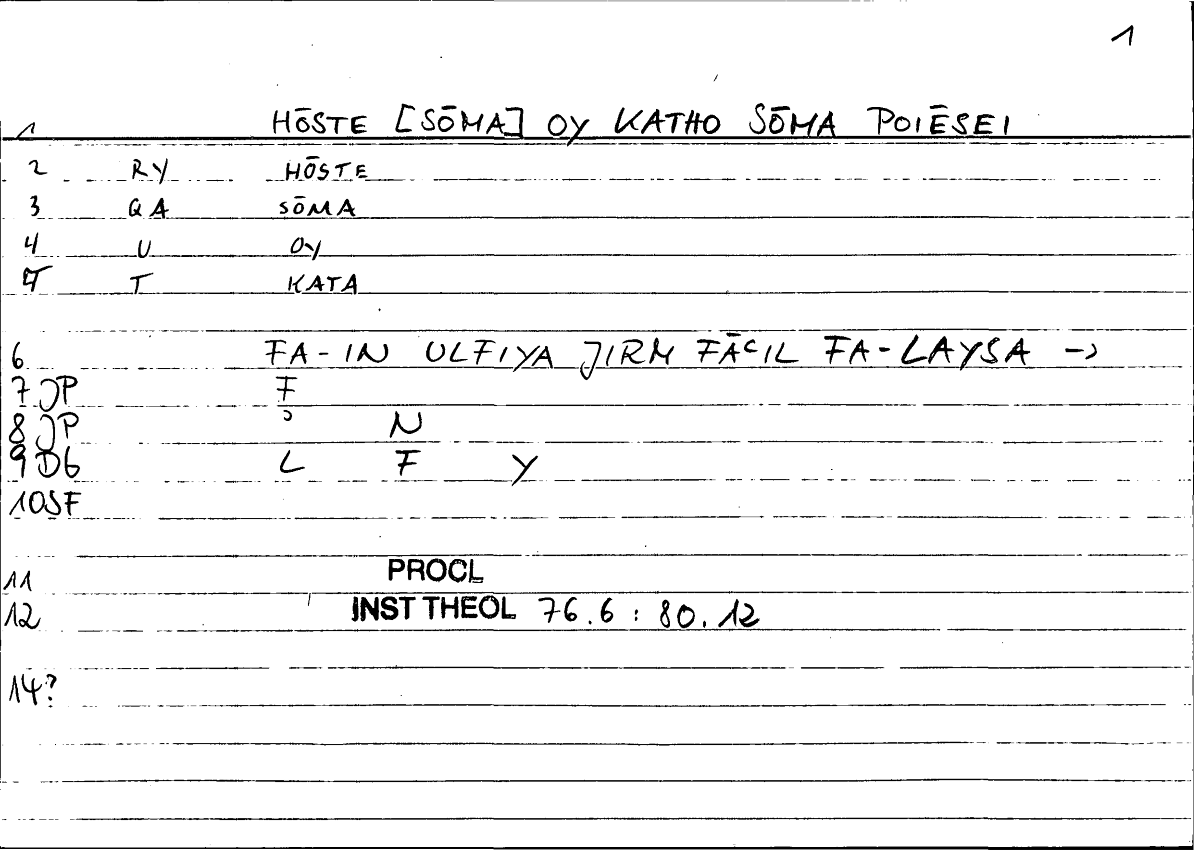 1
1 HŌSTE [SŌMA] OY KATHO SŌMA POIĒSEI
2 RY HŌSTE
3 QA SŌMA
4 U OY
5 T KATA
6 FA-IN ULFIYA JIRM FĀʿIL FA-LAYSA →
7 JP F
8 JP ʾ N
9 DG L F Y
10 SF
11 PROCL
12 INST THEOL 76.6 : 80.12
14?